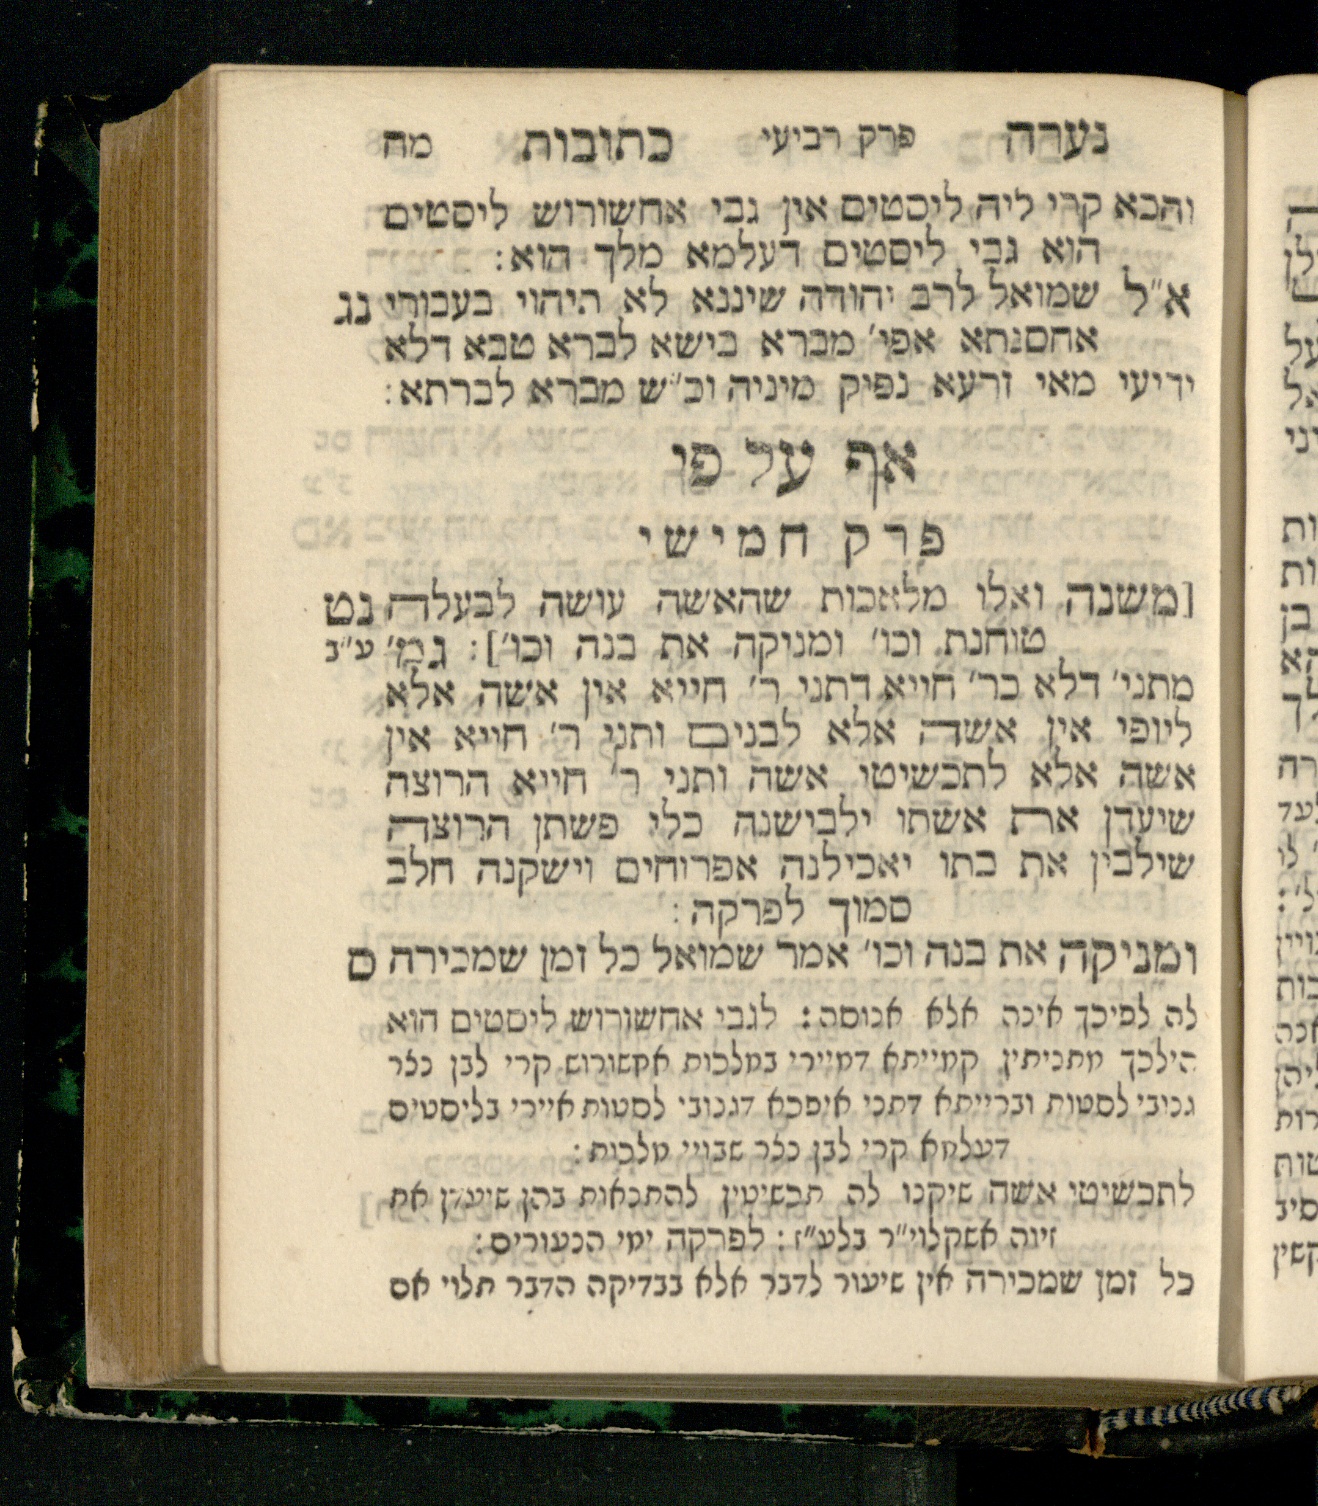 נערה פרק רביעי כתובות מח
והכא קרי ליה ליסטים אין גבי אחשורוש ליסטים
הוא גבי ליסטים דעלמא מלך הוא:
א״ל שמואל לרב יהודה שיננא לא תיהוי בעבורי נג
אחסנתא אפי׳ מברא בישא לברא טבא דלא
ידיעי מאי זרעא נפיק מיניה וכ״ש מברא לברתא:
אף על פי
פרק חמישי
[משנה ואלו מלאכות שהאשה עושה לבעלה נט
טוחנת וכו׳ ומניקה את בנה וכו׳]: גמ׳ ע״ב
מתני׳ דלא כר׳ חייא דתני ר׳ חייא אין אשה אלא
ליופי אין אשה אלא לבנים ותני ר׳ חייא אין
אשה אלא לתכשיטי אשה ותני ר׳ חייא הרוצה
שיעדן את אשתו ילבישנה כלי פשתן הרוצה
שילבין את בתו יאכילנה אפרוחים וישקנה חלב
סמוך לפרקה:
ומניקה את בנה וכו׳ אמר שמואל כל זמן שמכירה ס
לה לפיכך אינה אלא אנוסה: לגבי אחשורוש ליסטים הוא
הילכך מתניתין קמייתא דמיירי במלכות אחשורוש קרי לבן נצר
גנובי לסטות וברייתא דתני איפכא דגנובי לסטות איירי בליסטים
דעלמא קרי לבן נצר שבויי מלכות:
לתכשיטי אשה שיקנו לה תכשיטין להתנאות בהן שיעדן את
זיוה אשקלוי״ר בלע״ז: לפרקה ימי הנעורים:
כל זמן שמכירה אין שיעור לדבר אלא בבדיקה הדבר תלוי אם